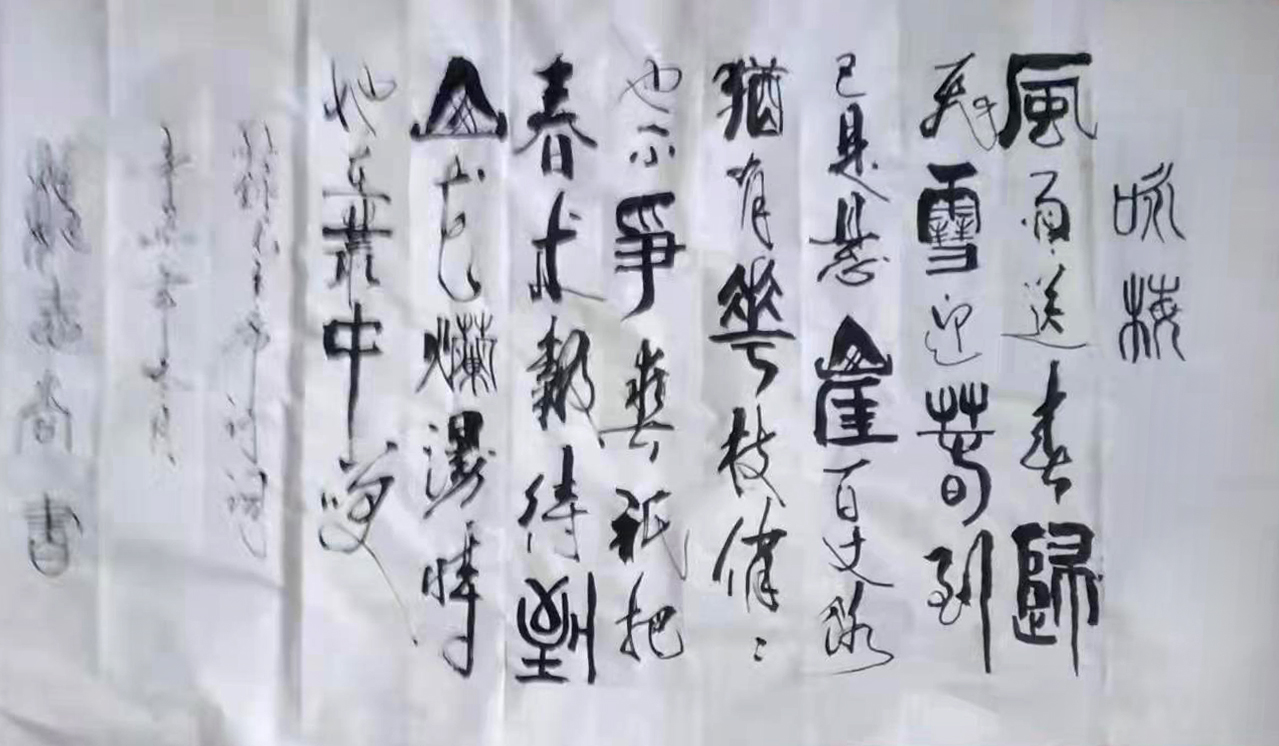 咏梅
風雨送春歸
飛雪迎春到
已是悬崖百丈冰
猶有華枝俏〻
也不爭春祇把
春來報待到
山花爛漫時
她在叢中笑
主席詩詞
書